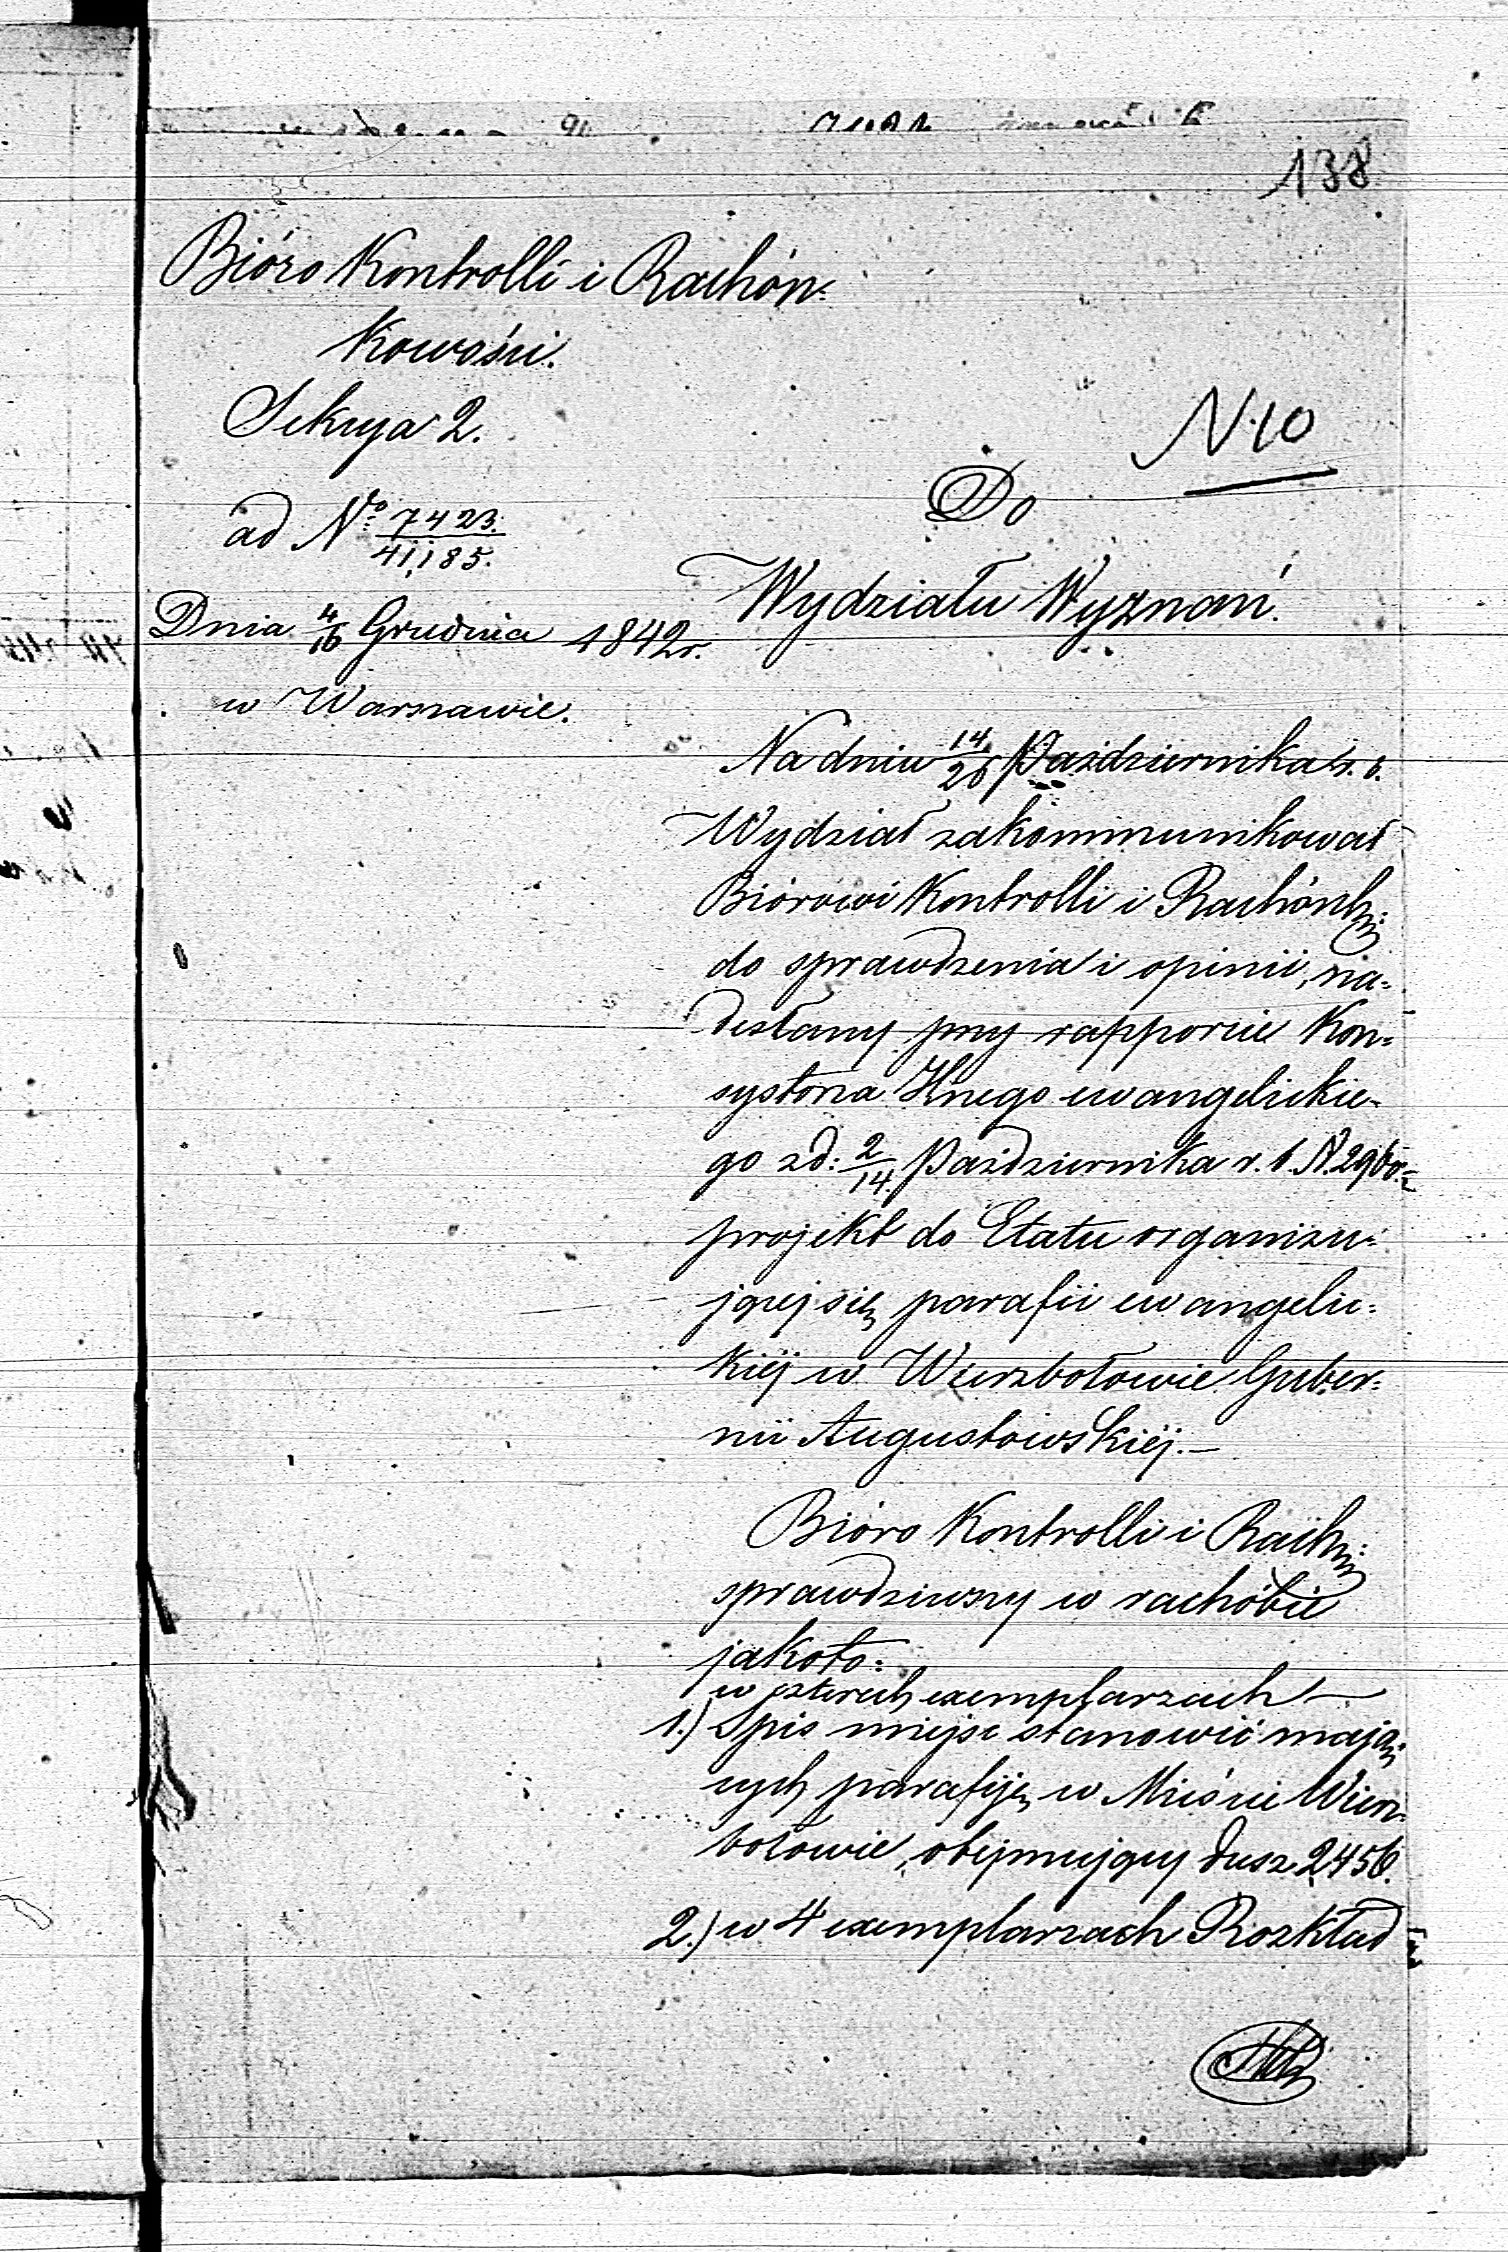 138
Bióro Kontrolli i Rachón-
kowości.
Sekcya 2.
N. 10
ad No 7423./41,185.
Do
Wydziału Wyznań.
Dnia 4/16 Grudnia 1842 r.
w Warszawie.
Na dniu 14/26 Października r. b.
Wydział zakommunikował
Biórowi Kontrolli i Rachónk:
do sprawdzenia i opinii, na-
desłany przy rapporcie Kon-
systorza Glnego ewangelickie-
go z d: 2/14. Października r. b. N. 2960.
projekt do Etatu organizu-
jącej się parafii ewangelic-
kiéj w Wierzbołowie Guber-
nii Augustowskiéj. —
Bióro Kontrolli i Rach:
sprawdziwszy w rachóbie
jakoto:
w czterech exemplarzach —
1.) Spis miejsc stanowić mają-
cych parafiję w Mieście Wierz-
bołowie, obejmujący dusz 2456.
2.) w 4 exemplarzach Rozkład